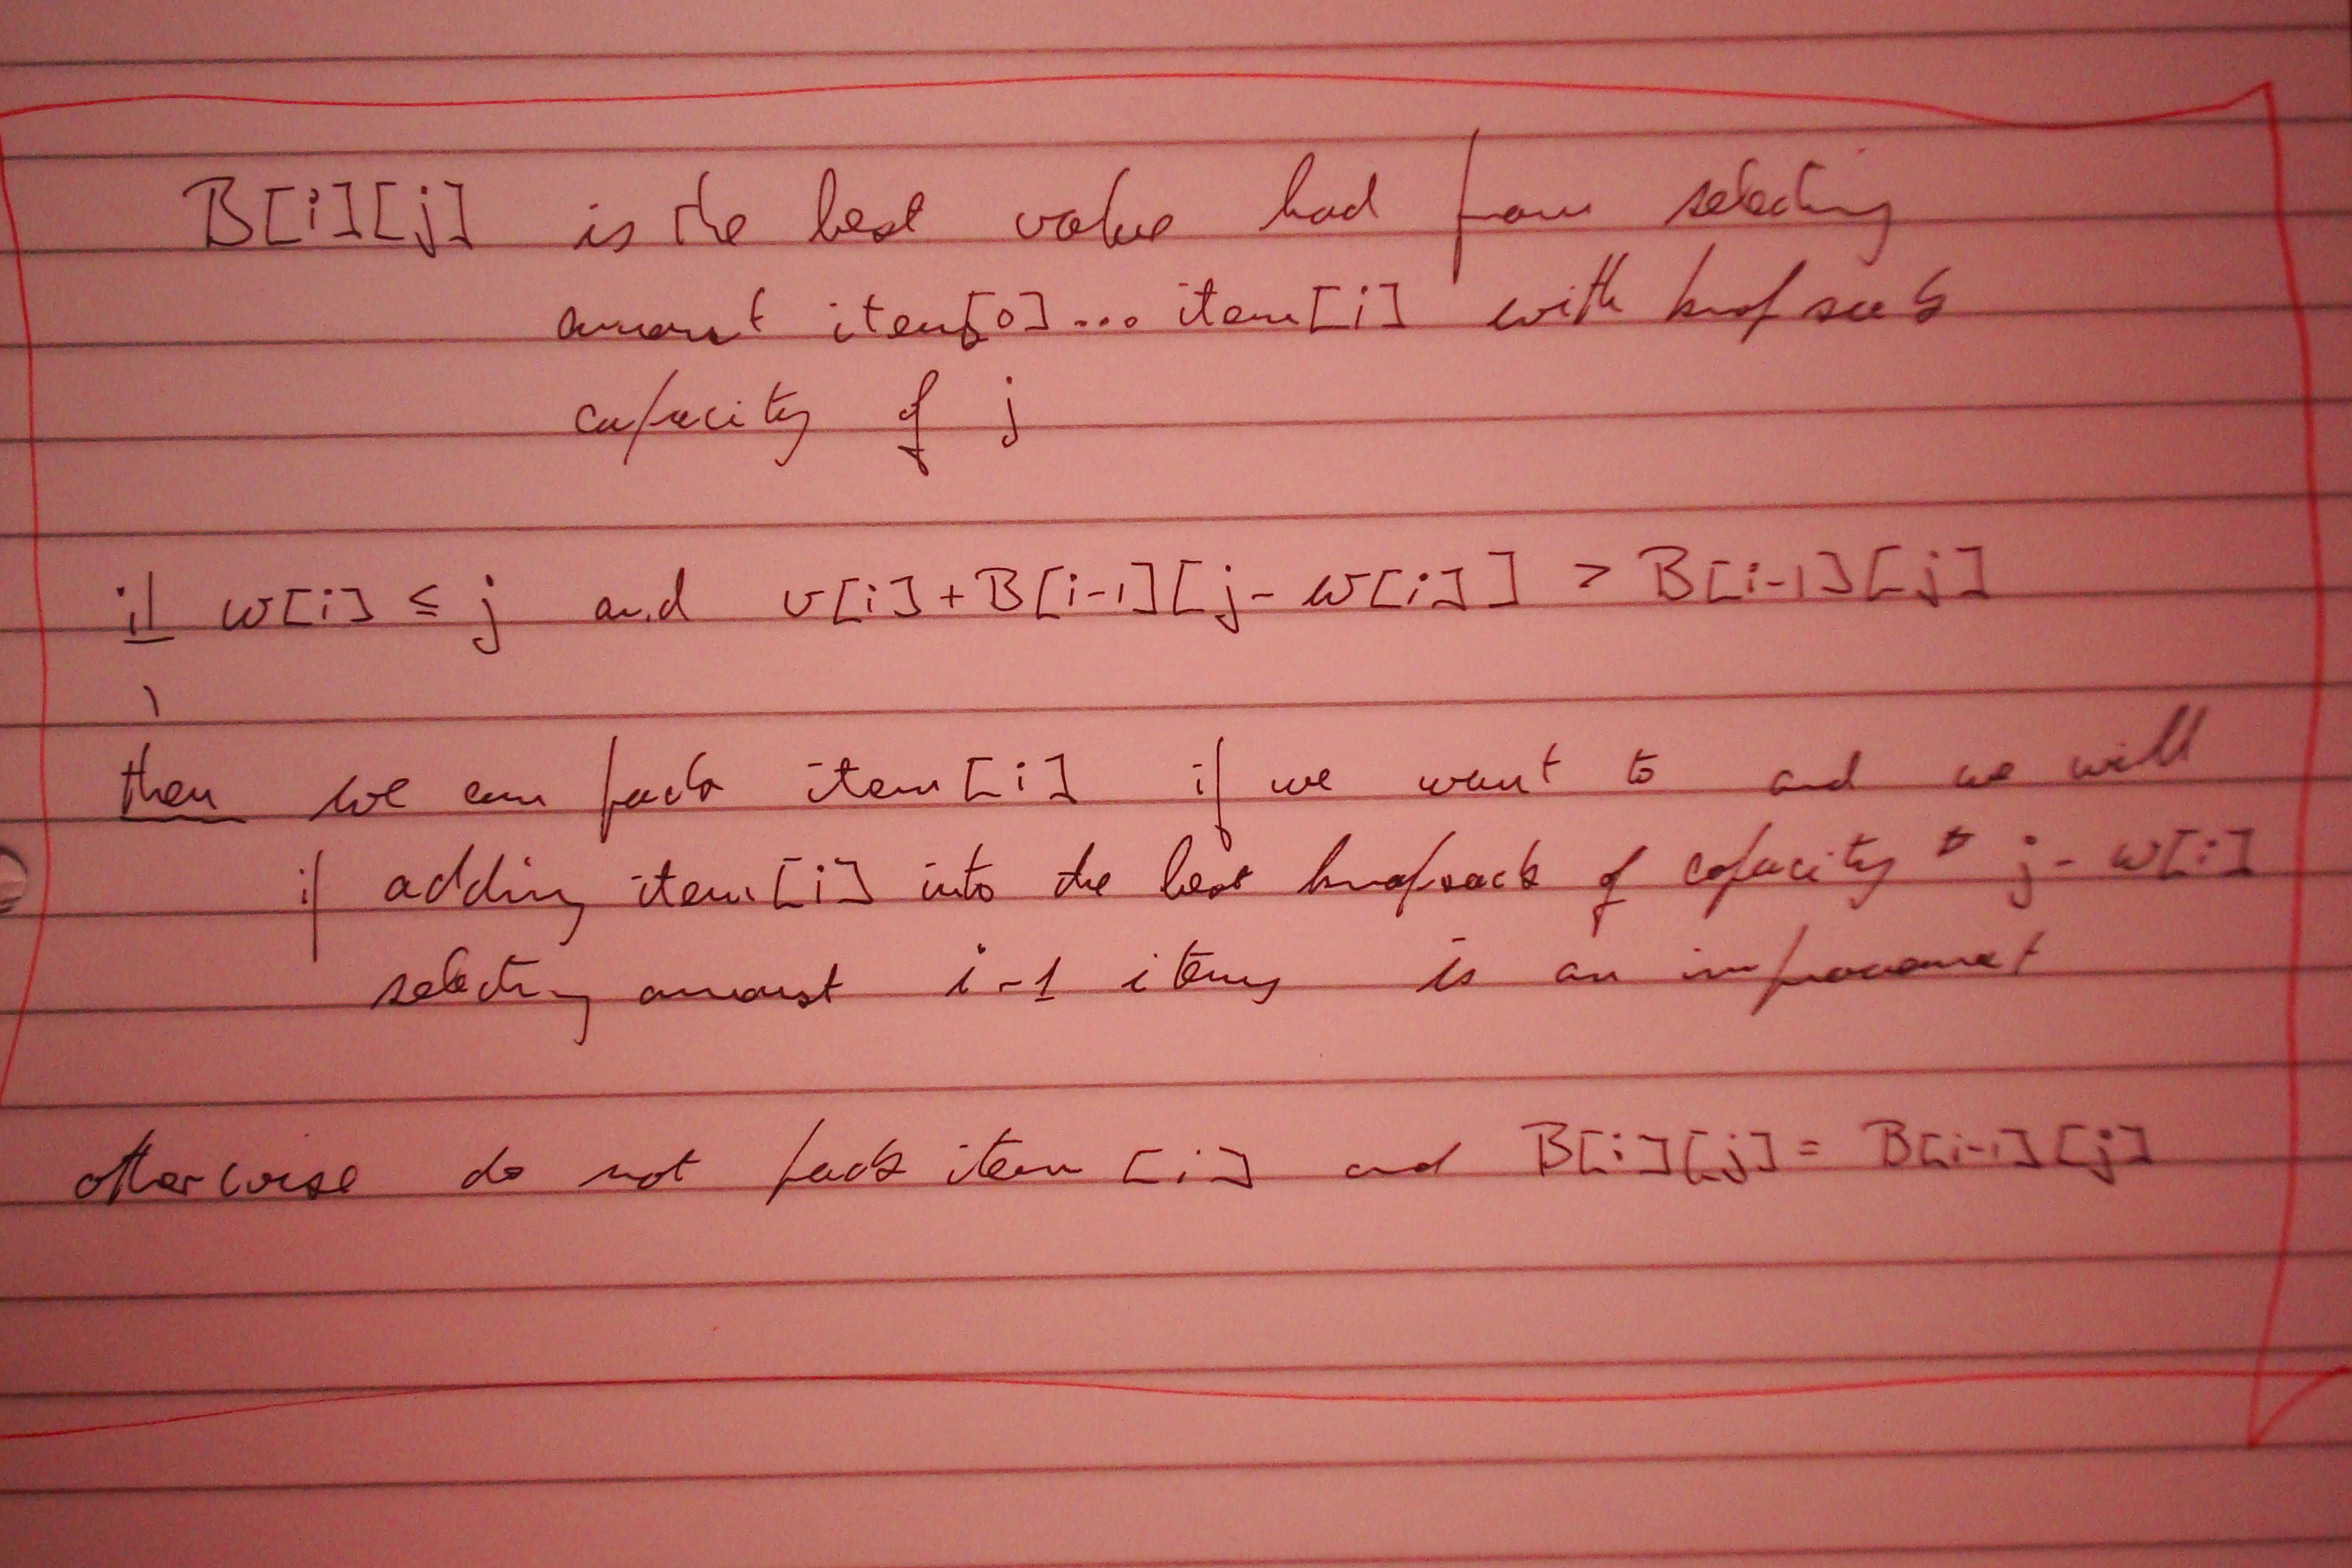 B[i][j] is the best value had from selecting
amongst item[0]...item[i] with knapsack
capacity of j
if w[i] ≤ j and v[i]+B[i-1][j-w[i]] > B[i-1][j]
then we can pack item[i] if we want to and we will
if adding item[i] into the best knapsack of capacity j-w[i]
selecting amongst i-1 items is an improvement
otherwise do not pack item [i] and B[i][j] = B[i-1][j]